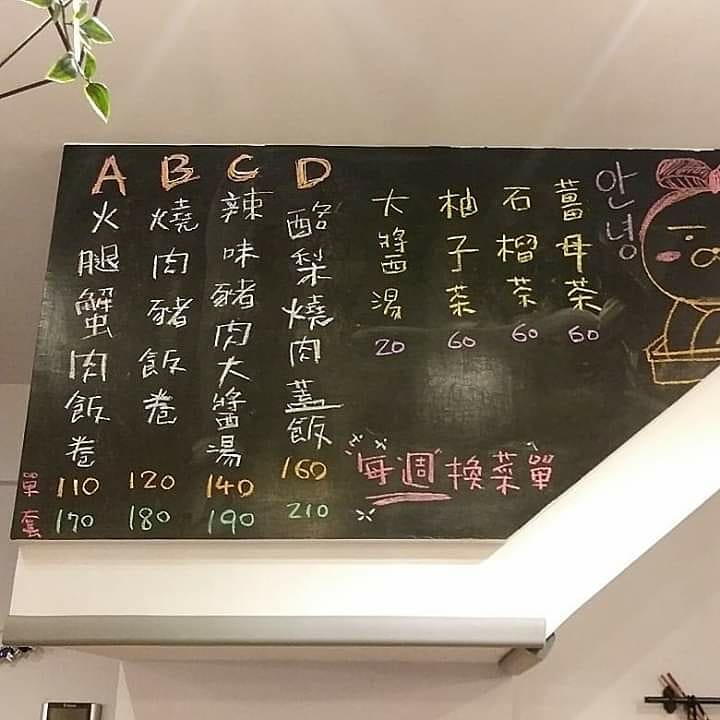 A
火腿蟹肉飯卷
B
燒肉豬飯卷
C
辣味豬肉大醬湯
D
酪梨燒肉蓋飯
單 110 120 140 160
套 170 180 190 210
大醬湯
20
柚子茶
60
石榴茶
60
薑母茶
60
안녕
每週換菜單